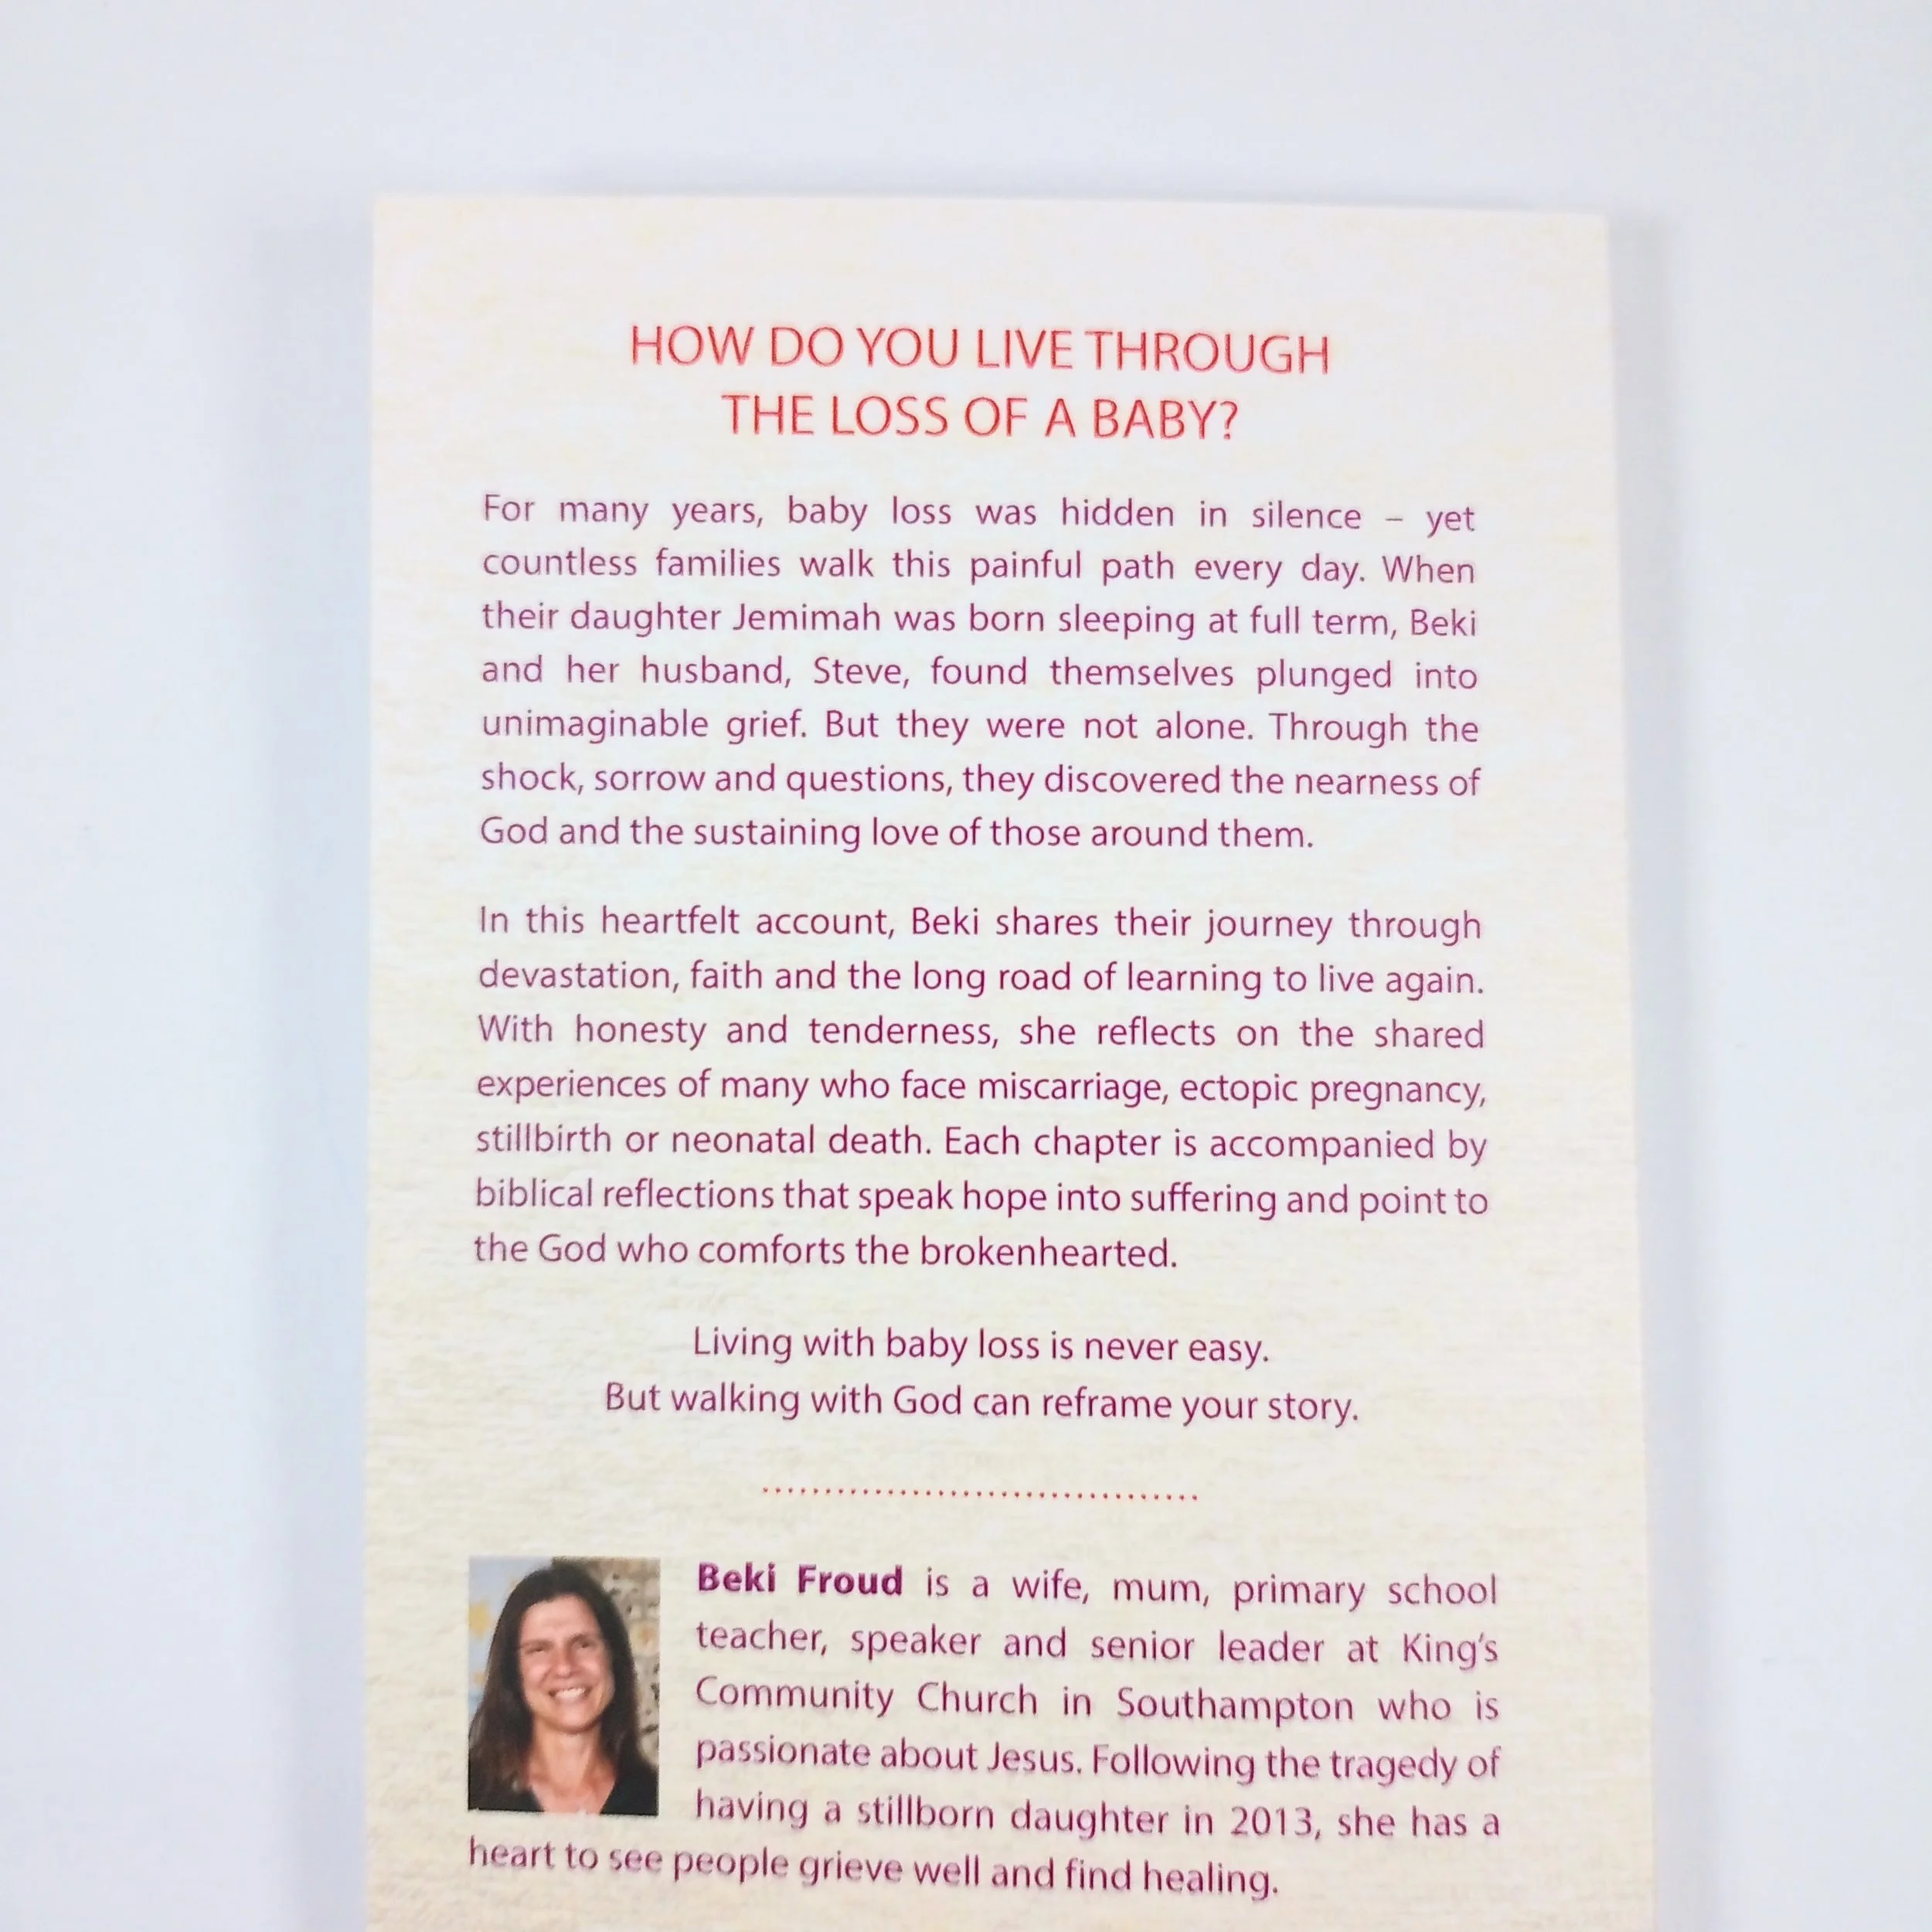 HOW DO YOU LIVE THROUGH
THE LOSS OF A BABY?
For many years, baby loss was hidden in silence – yet
countless families walk this painful path every day. When
their daughter Jemimah was born sleeping at full term, Beki
and her husband, Steve, found themselves plunged into
unimaginable grief. But they were not alone. Through the
shock, sorrow and questions, they discovered the nearness of
God and the sustaining love of those around them.
In this heartfelt account, Beki shares their journey through
devastation, faith and the long road of learning to live again.
With honesty and tenderness, she reflects on the shared
experiences of many who face miscarriage, ectopic pregnancy,
stillbirth or neonatal death. Each chapter is accompanied by
biblical reflections that speak hope into suffering and point to
the God who comforts the brokenhearted.
Living with baby loss is never easy.
But walking with God can reframe your story.
Beki Froud is a wife, mum, primary school
teacher, speaker and senior leader at King's
Community Church in Southampton who is
passionate about Jesus. Following the tragedy of
having a stillborn daughter in 2013, she has a
heart to see people grieve well and find healing.